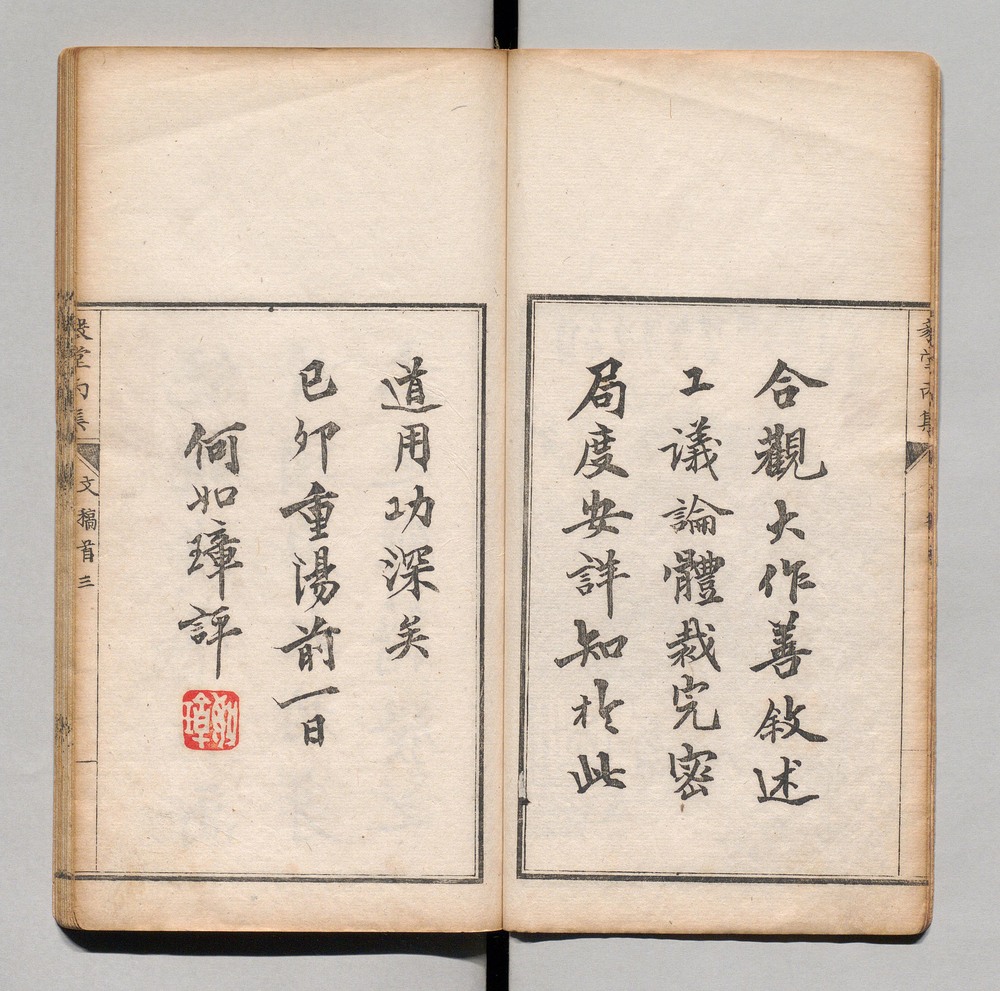 合觀大作善敘述
工議論體裁完密
局度安詳知於此
道用功深矣
已卯重陽前一日
何如璋評
堂丙集
文稿首 三